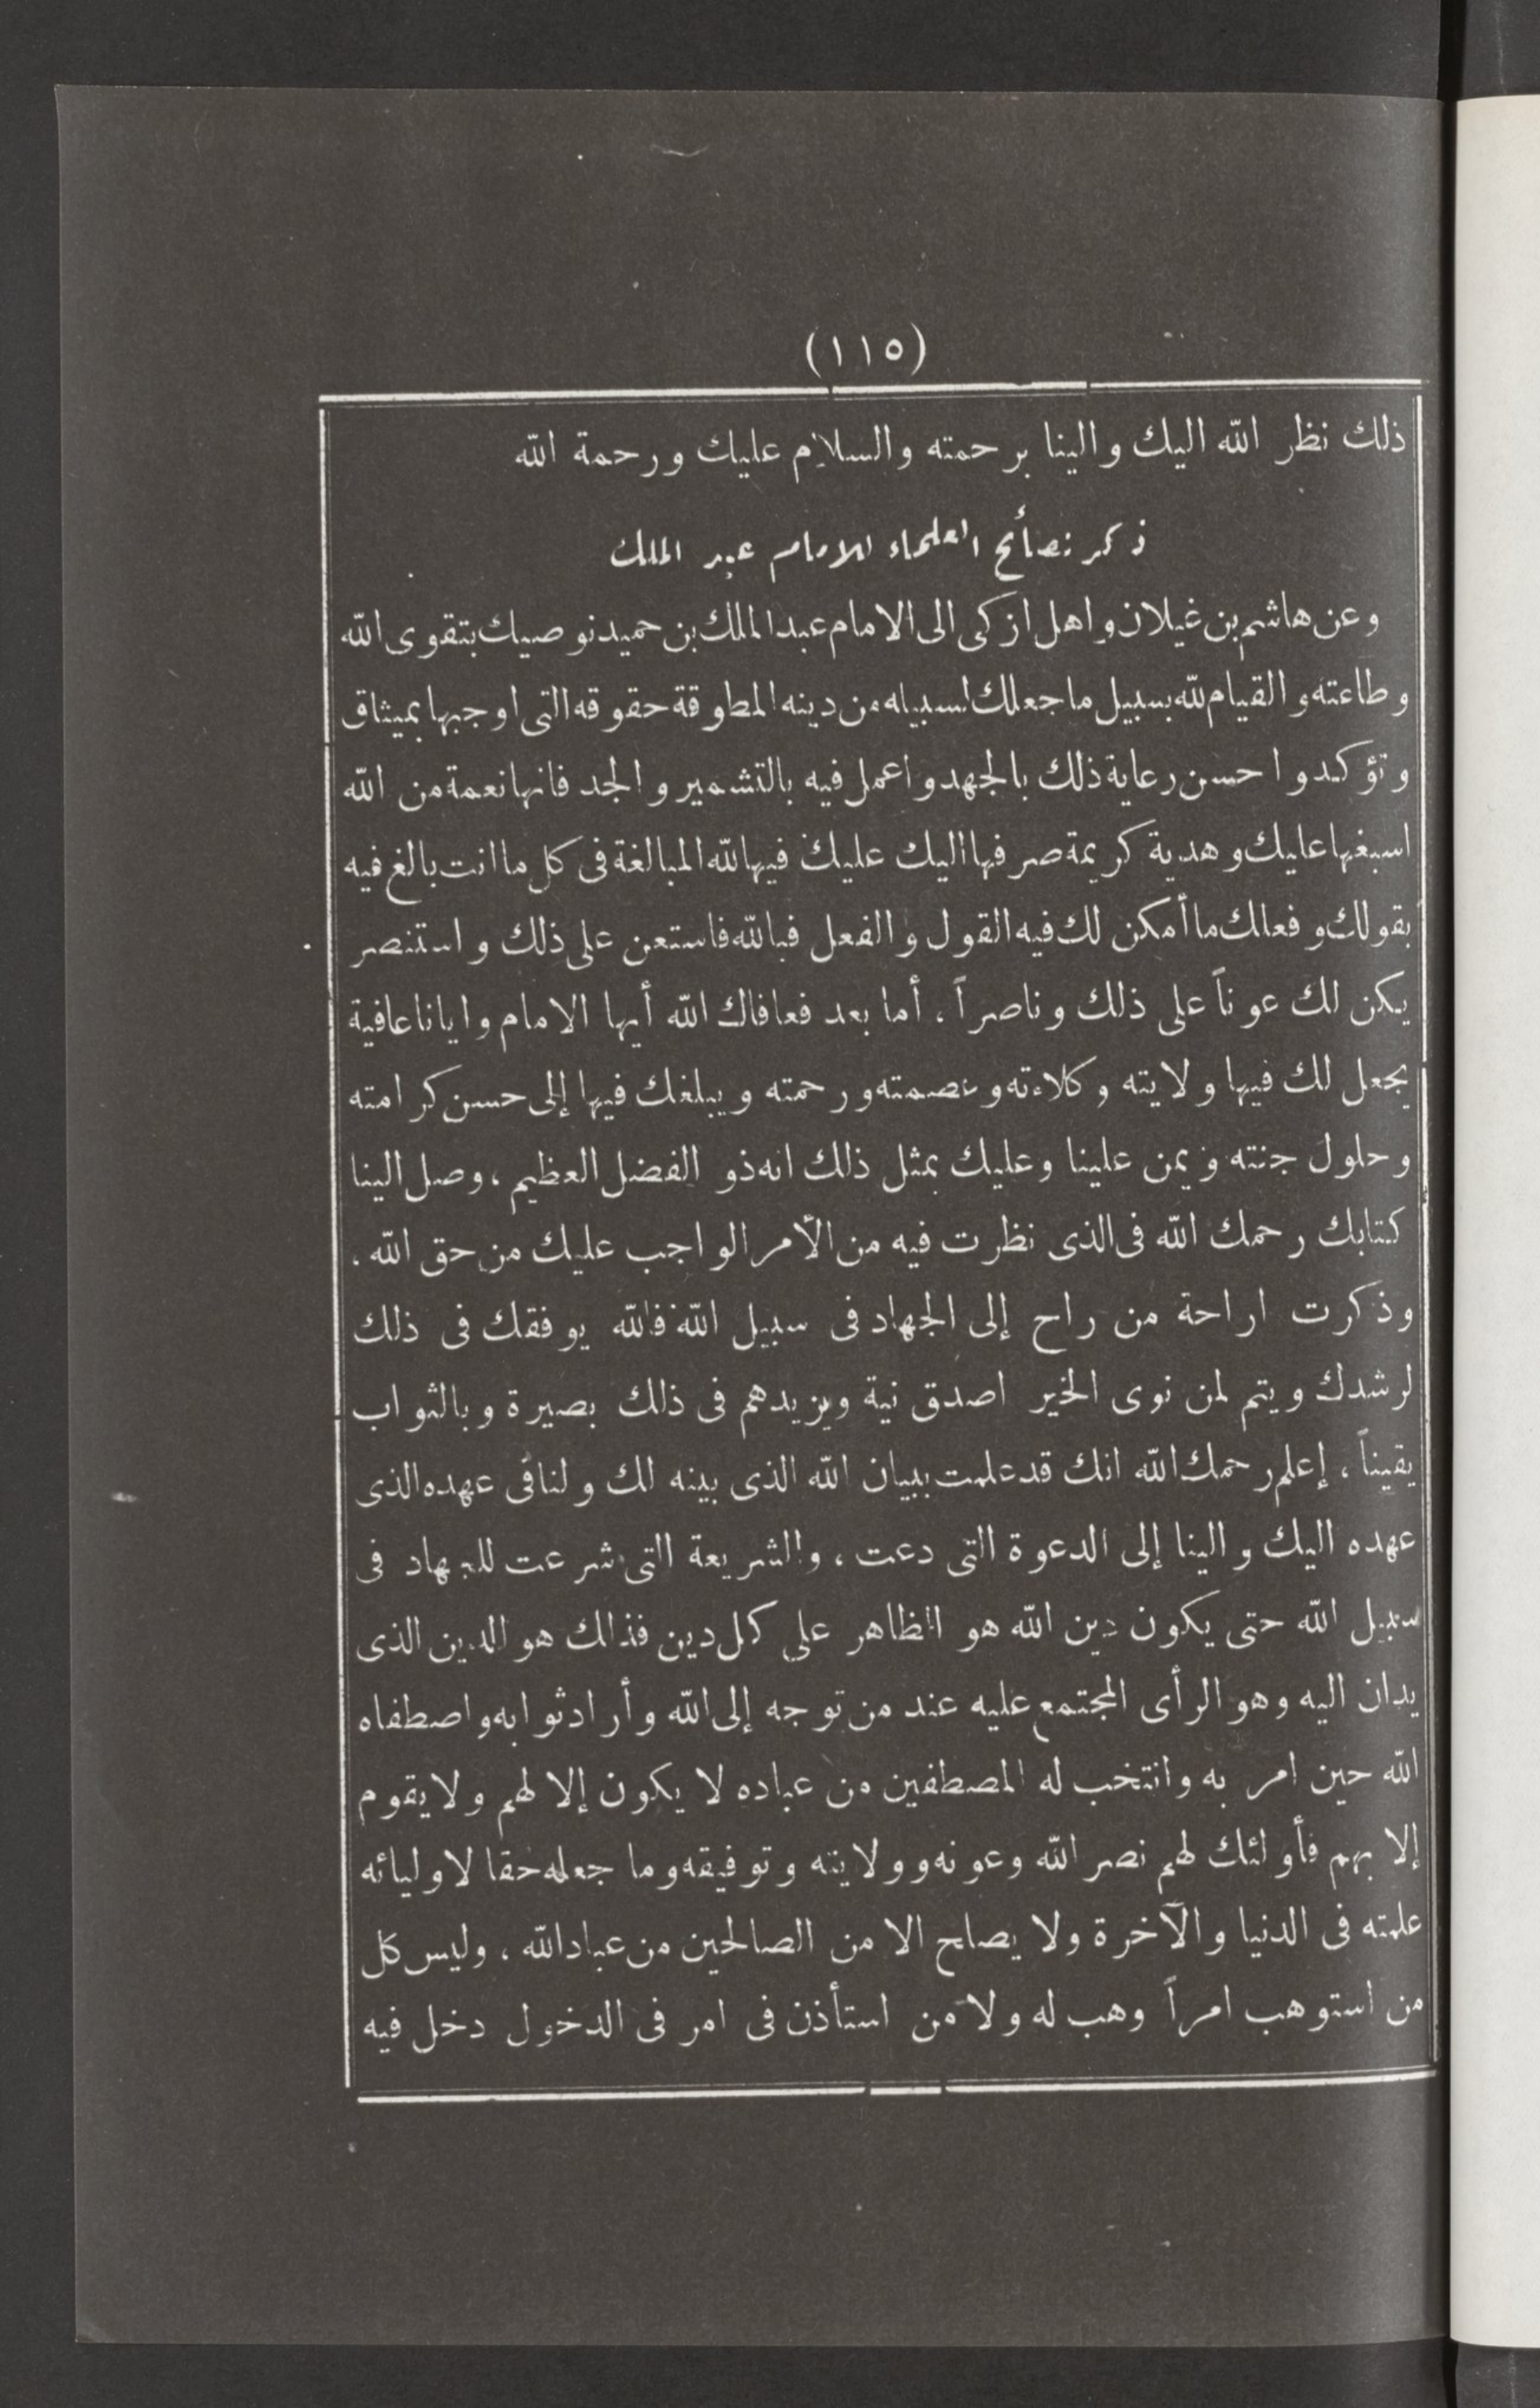 (١١٥)
ذلك نظر الله اليك والينا برحمته والسلام عليك ورحمة الله
ذكر نصائح العلماء للامام عبد الملك
وعن هاشم بن غيلان واهل ازكى الى الامام عبد الملك بن حميد نوصيك بتقوى الله
وطاعته والقيام لله بسبيل ما جعلك لسبيله من دينه المطوقة حقوقه التى اوجبها بميثاق
وتؤكد واحسن رعاية ذلك بالجهد واعمل فيه بالتشمير والجد فانها نعمة من الله
اسبغها عليك وهدية كريمة صرفها اليك عليك فيها لله المبالغة فى كل ما انت بالغ فيه
بقولك وفعلك ما أمكن لك فيه القول والفعل فبالله فاستعن على ذلك واستنصر
يكن لك عوناً على ذلك وناصراً ، أما بعد فعافاك الله أيها الامام وايانا عافية
يجعل لك فيها ولايته وكلاءته وعصمته ورحمته ويبلغك فيها إلى حسن كرامته
وحلول جنته ويمن علينا وعليك بمثل ذلك انه ذو الفضل العظيم ، وصل الينا
كتابك رحمك الله فى الذى نظرت فيه من الأمر الواجب عليك من حق الله .
وذكرت اراحة من راح إلى الجهاد فى سبيل الله فالله يوفقك فى ذلك
لرشدك ويتم لمن نوى الخير اصدق نية ويزيدهم فى ذلك بصيرة وبالثواب
يقيناً ، إعلم رحمك الله انك قد علمت ببيان الله الذى بينه لك ولنا فى عهده الذى
عهده اليك والينا إلى الدعوة التى دعت ، والشريعة التى شرعت للجهاد فى
سبيل الله حتى يكون دين الله هو الظاهر على كل دين فذلك هو الدين الذى
يدان اليه وهو الرأى المجتمع عليه عند من توجه إلى الله وأراد ثوابه واصطفاه
الله حين امر به وانتخب له المصطفين من عباده لا يكون إلا لهم ولا يقوم
إلا بهم فأولئك لهم نصر الله وعونه وولايته وتوفيقه وما جعله حقا لاوليائه
علمته فى الدنيا والآخرة ولا يصلح الا من الصالحين من عباد الله ، وليس كل
من استوهب امراً وهب له ولا من استأذن فى امر فى الدخول دخل فيه